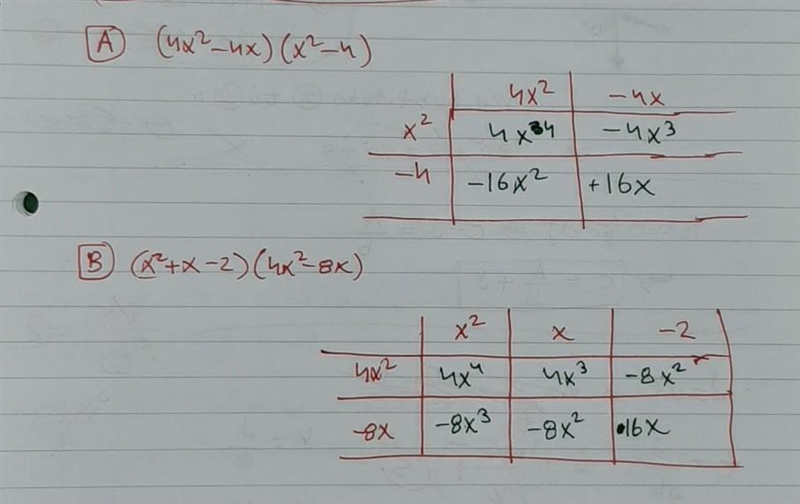 A (4x²-4x)(x²-4)
4x² -4x
x² 4x⁴ -4x³
-4 -16x² +16x
B (x²+x-2)(4x²-8x)
x² x -2
4x² 4x⁴ 4x³ -8x²
-8x -8x³ -8x² 16x